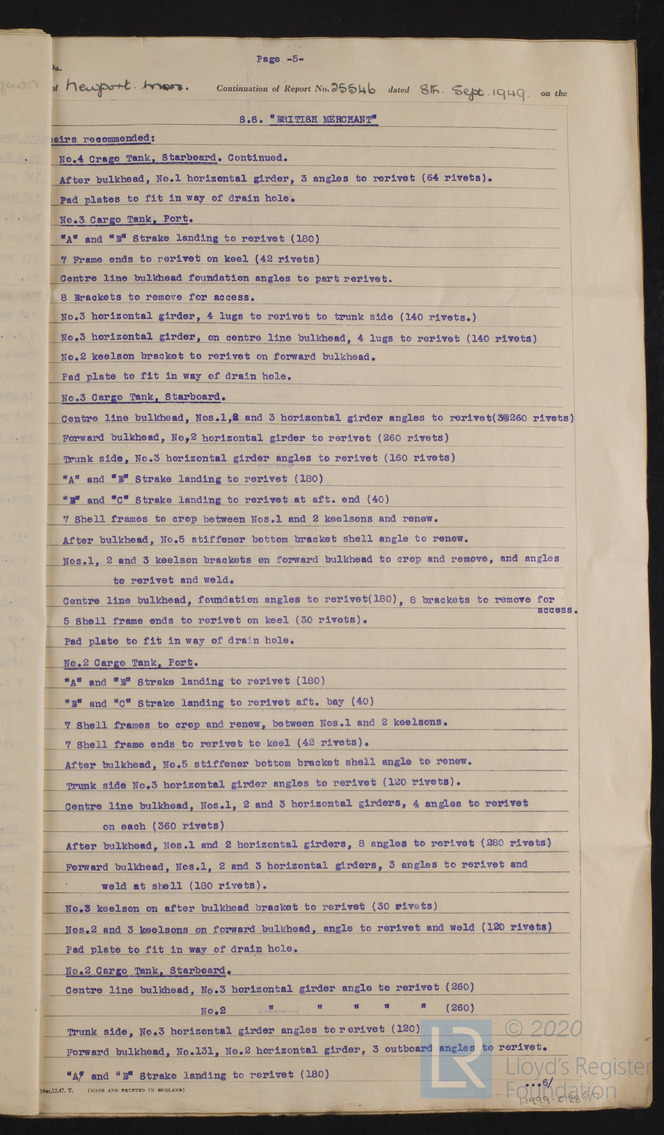 Page -5-
Newport. Mon. Continuation of Report No. 25546 dated 8th. Sept. 1949. on the
S.S. "BRITISH MERCHANT"
airs recommended:
No.4 Crago Tank, Starboard. Continued.
After bulkhead, No.1 horizontal girder, 3 angles to rerivet (64 rivets).
Pad plates to fit in way of drain hole.
No.3 Cargo Tank, Port.
"A" and "B" Strake landing to rerivet (180)
7 Frame ends to rerivet on keel (42 rivets)
Centre line bulkhead foundation angles to part rerivet.
8 Brackets to remove for access.
No.3 horizontal girder, 4 lugs to rerivet to trunk side (140 rivets.)
No.3 horizontal girder, on centre line bulkhead, 4 lugs to rerivet (140 rivets)
No.2 keelson bracket to rerivet on forward bulkhead.
Pad plate to fit in way of drain hole.
No.3 Cargo Tank, Starboard.
Centre line bulkhead, Nos.1,2 and 3 horizontal girder angles to rerivet(3@260 rivets)
Forward bulkhead, No,2 horizontal girder to rerivet (260 rivets)
Trunk side, No.3 horizontal girder angles to rerivet (160 rivets)
"A" and "B" Strake landing to rerivet (180)
"B" and "C" Strake landing to rerivet at aft. end (40)
7 Shell frames to crop between Nos.1 and 2 keelsons and renew.
After bulkhead, No.5 stiffener bottom bracket shell angle to renew.
Nos.1, 2 and 3 keelson brackets on forward bulkhead to crop and remove, and angles
to rerivet and weld.
Centre line bulkhead, foundation angles to rerivet(180), 8 brackets to remove for
access.
5 Shell frame ends to rerivet on keel (30 rivets).
Pad plate to fit in way of drain hole.
No.2 Cargo Tank, Port.
"A" and "B" Strake landing to rerivet (180)
"B" and "C" Strake landing to rerivet aft. bay (40)
7 Shell frames to crop and renew, between Nos.1 and 2 keelsons.
7 Shell frame ends to rerivet to keel (42 rivets).
After bulkhead, No.5 stiffener bottom bracket shell angle to renew.
Trunk side No.3 horizontal girder angles to rerivet (120 rivets).
Centre line bulkhead, Nos.1, 2 and 3 horizontal girders, 4 angles to rerivet
on each (360 rivets)
After bulkhead, Nos.1 and 2 horizontal girders, 8 angles to rerivet (280 rivets)
Forward bulkhead, Nos.1, 2 and 3 horizontal girders, 3 angles to rerivet and
weld at shell (180 rivets).
No.3 keelson on after bulkhead bracket to rerivet (30 rivets)
Nos.2 and 3 keelsons on forward bulkhead, angle to rerivet and weld (120 rivets)
Pad plate to fit in way of drain hole.
No.2 Cargo Tank, Starboard.
Centre line bulkhead, No.3 horizontal girder angle to rerivet (260)
No.2 " " " " " (260)
Trunk side, No.3 horizontal girder angles to rerivet (120)
Forward bulkhead, No.131, No.2 horizontal girder, 3 outboard angles to rerivet.
"A" and "B" Strake landing to rerivet (180)
...6/
(MADE AND PRINTED IN ENGLAND)
LR © 2020
Lloyd's Register
Foundation